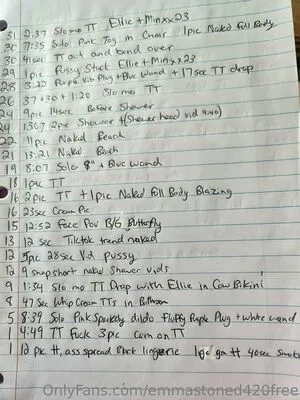 31 2:37 Slo mo TT Ellie + Minxx23
30 7:35 Solo Pink Toy in Chair 1pic Naked Full Body
30 41sec TT out and bend over
29 1pic Pussy Shot Ellie + Minxx23
28 3:22 Purple Vib Plug + Blue Wand + 17sec TT drop
26 37 + 30 + 1:20 Slo mo TT
24 9pic 14sec Before Shower
24 1:307 2pic Shower + (Shower head vid 9:40)
22 11pic Naked Beach
21 13:21 Naked Bath
19 8:07 Solo 8" + Blue wand
18 1pic TT
16 2pic TT + 1pic Naked Full Body Blazing
16 23sec Cream Pie
15 12:52 Face Pov B/G Butterfly
13 12 sec Tiktok trend naked
12 5pic 28sec Vid pussy
12 9 snap short naked Shower vids
9 1:34 Slo mo TT Drop with Ellie in Cow Bikini
8 47sec Whip Cream TTs in Bathroom
5 8:39 Solo Pink Sparkly dildo Fluffy Purple Plug + white wand
1 4:49 TT Fuck 3pic cum on TT
1 12 pic tt, ass spread Black lingerie 40sec
OnlyFans.com/emmastoned420free